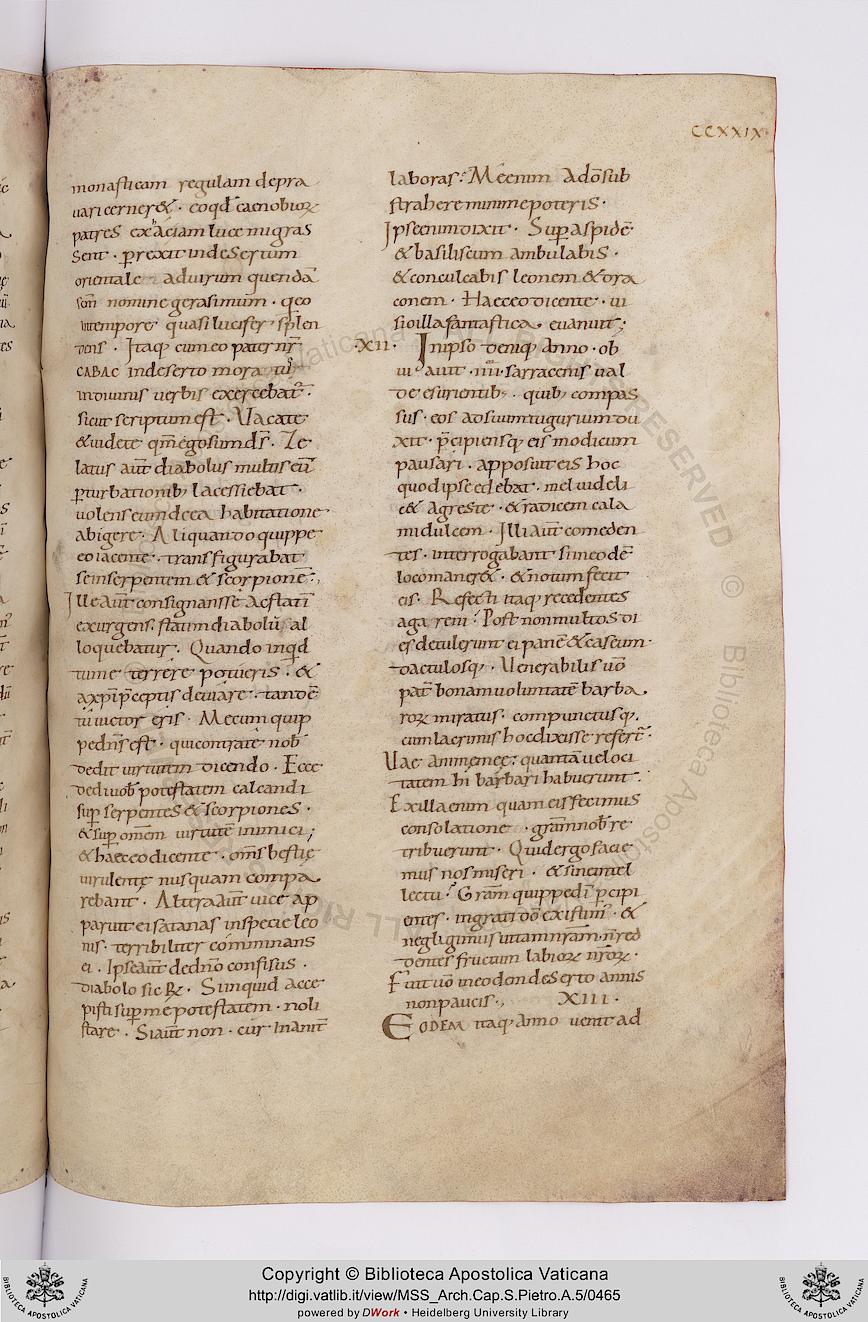 CCXXIX
monasticam regulam depra
uaricerner&. eoqđ caenobior̄
patres ex aciam luce migras
sent. p̄rexit in desertum
orientale aduirum quendā
sem̄ nomine gerasimum. q̄eo
intempore quasi lucifer splen
dens. Itaq; cum eo pater nr̄
SABAS indeserto mora
indiuinis uerbis exercebat̄.
sicut scriptum est. Uacate
&uidete qm̄ ego sum ds̄. Ze
latus aut̄ diabolus multis eū
p̄turbationib; lacessiebat.
uolens eum de ea habitatione
abigere. Aliquando quippe
eo iacente. transfigurabat
se in serpentem & scorpionē.
Ille aut̄ consignans se ac statī
exurgens. statum diabolū al
loquebatur. Quando inq̄d
tu me terrere potueris. &
a xp̄i p̄ceptis deuiare. tandē
tu uictor eris. Mecum quip
pe dn̄s est. qui contra te nob̄
dedit uirtutem dicendo. Ecce
dedi uob̄ potestatem calcandi
sup̄ serpentes & scorpiones.
& sup̄ omnem uirtutē inimici;
& haec eo dicente. om̄s bestię
uirulentę nusquam compa
rebant. Altera aut̄ uice ap
paruit ei satanas in specie leo
nis. terribiliter comminans
ei. Ipse aut̄ de dn̄o confisus.
diabolo sic R̄. Si inquid acce
pisti sup̄ me potestatem. noli
stare. Si aut̄ non. cur inanit̄
laboras? Me enim a dō sub
strahere minime poteris.
Ipse enim dixit. Sup̄ aspidē
& basiliscum ambulabis.
& conculcabis leonem & dra
conem. Haec eo dicente. ui
sio illa fantastica. euanuit;
.XII. In ipso deniq; anno. ob
ui auit. IIII. sarracenis ual
de esurientib;. quib; compas
sus. eos ad suum tugurium du
xit. p̄cipiensq; eis modicum
pausari. apposuit eis hoc
quod ipse edebat. mel uideli
c& agreste. & radicem cala
mi dulcem. Illi aut̄ comeden
tes. interrogabant si in eodē
loco maner&. & notum fecit
eis. Refecti itaq; recedentes
agareni. Post non multos di
es detulerunt ei panē & caseum.
dactulosq;. Uenerabilis uō
pat̄ bonam uoluntatē barba
ror̄ miratus. compunctusq;.
cum lacrimis hoc dixisse refert̄.
Uae anime meę: quanta ueloci
tatem hi barbari habuerunt.
Ex illa enim quam eis fecimus
consolatione. gram̄ nob̄ re
tribuerunt. Quid ergo facie
mus nos miseri. & sine intel
lectu? Gram̄ quippe dī p̄cipi
entes. ingrati dō existim̄. &
negligimus uitam nr̄am. n̄ red
dentes fructum labior̄ nr̄or̄.
Fuit uō in eodem deserto annis
non paucis. XIII.
EODEM itaq; anno uenit ad
Copyright © Biblioteca Apostolica Vaticana
http://digi.vatlib.it/view/MSS_Arch.Cap.S.Pietro.A.5/0465
powered by DWork • Heidelberg University Library